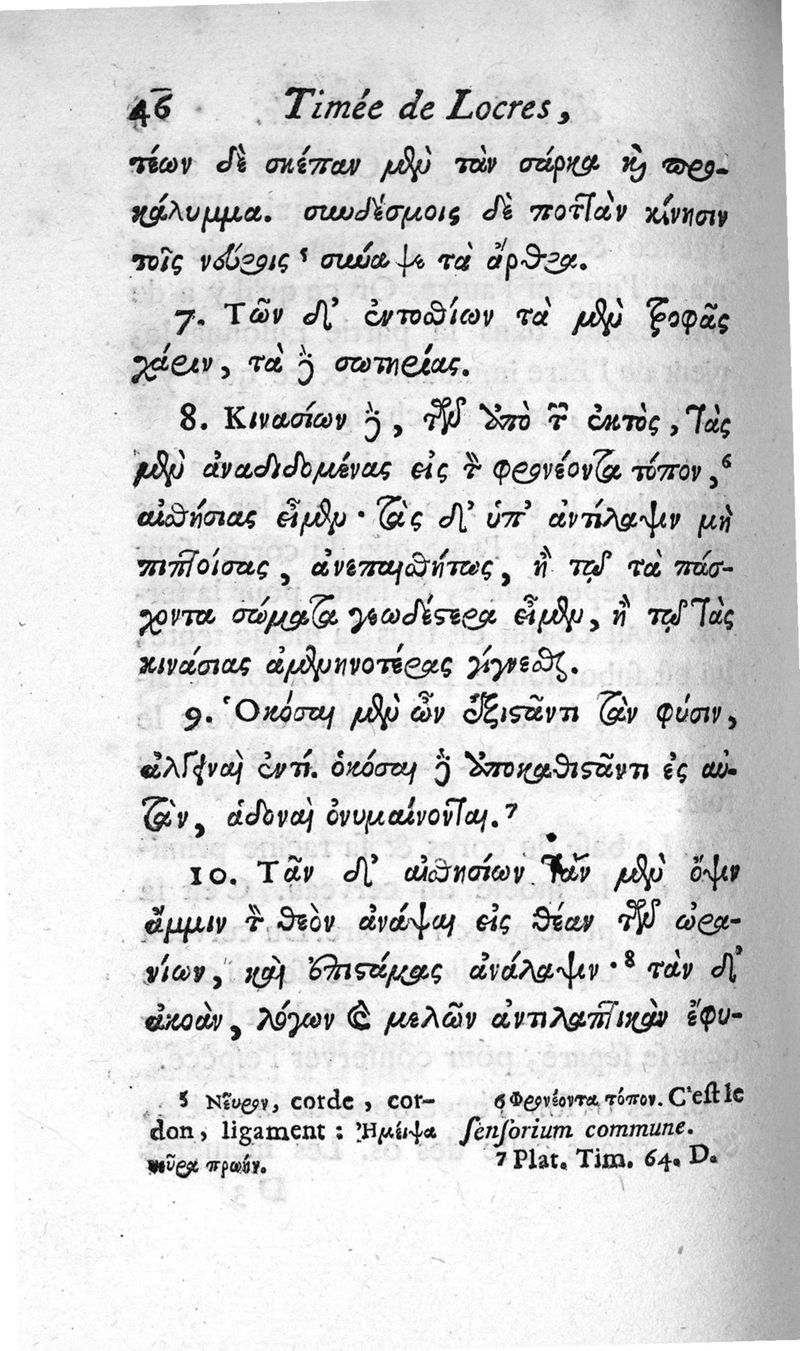 46 Timée de Locres,
τέων δὲ σκέπαν μὲν τὰν σάρκα καὶ προ-
κάλυμμα. συνδέσμοις δὲ ποτ τὰν κίνησιν
τοῖς νεύροις 5 συνᾶψε τὰ ἄρθρα.
7. Τῶν δ' ἐντοσθίων τὰ μὲν τροφᾶς
χάριν, τὰ δὲ σωτηρίας.
8. Κινασίων δὲ, τῶν ἀπὸ τῶν ἐκτὸς, τὰς
μὲν ἀναδιδομένας εἰς τὸν φρονέοντα τόπον, 6
αἰσθήσιας εἶμεν· τὰς δ' ὑπ' ἀντίλαψιν μὴ
πιπτοίσας, ἀνεπαισθήτως, ἢ τῷ τὰ πάσ-
χοντα σώματα γεωδέστερα εἶμεν, ἢ τῷ τὰς
κινάσιας ἀμενηνοτέρας γίγνεσθαι.
9. Ὁκόσαι μὲν ὦν ἐξιστᾶντι τὰν φύσιν,
ἀλγειναὶ ἐντί. ὁκόσαι δὲ ἀποκαθιστᾶντι ἐς αὐ-
τὰν, ἁδοναὶ ὀνυμαίνονται. 7
10. Τᾶν δ' αἰσθησίων τὰν μὲν ὄψιν
ἄμμιν τὸν θεὸν ἀνάψαι εἰς θέαν τῶν ὠρα-
νίων, καὶ ἐπιστάμας ἀνάλαψιν· 8 τὰν δ'
ἀκοὰν, λόγων καὶ μελῶν ἀντιλαπτικὰν ἔφυ-
5 Νεῦρον, corde, cor-
don, ligament: Ἤμειψα
νεῦρα πρώην.
6 Φρονέοντα τόπον. C'est le
sensorium commune.
7 Plat. Tim. 64. D.